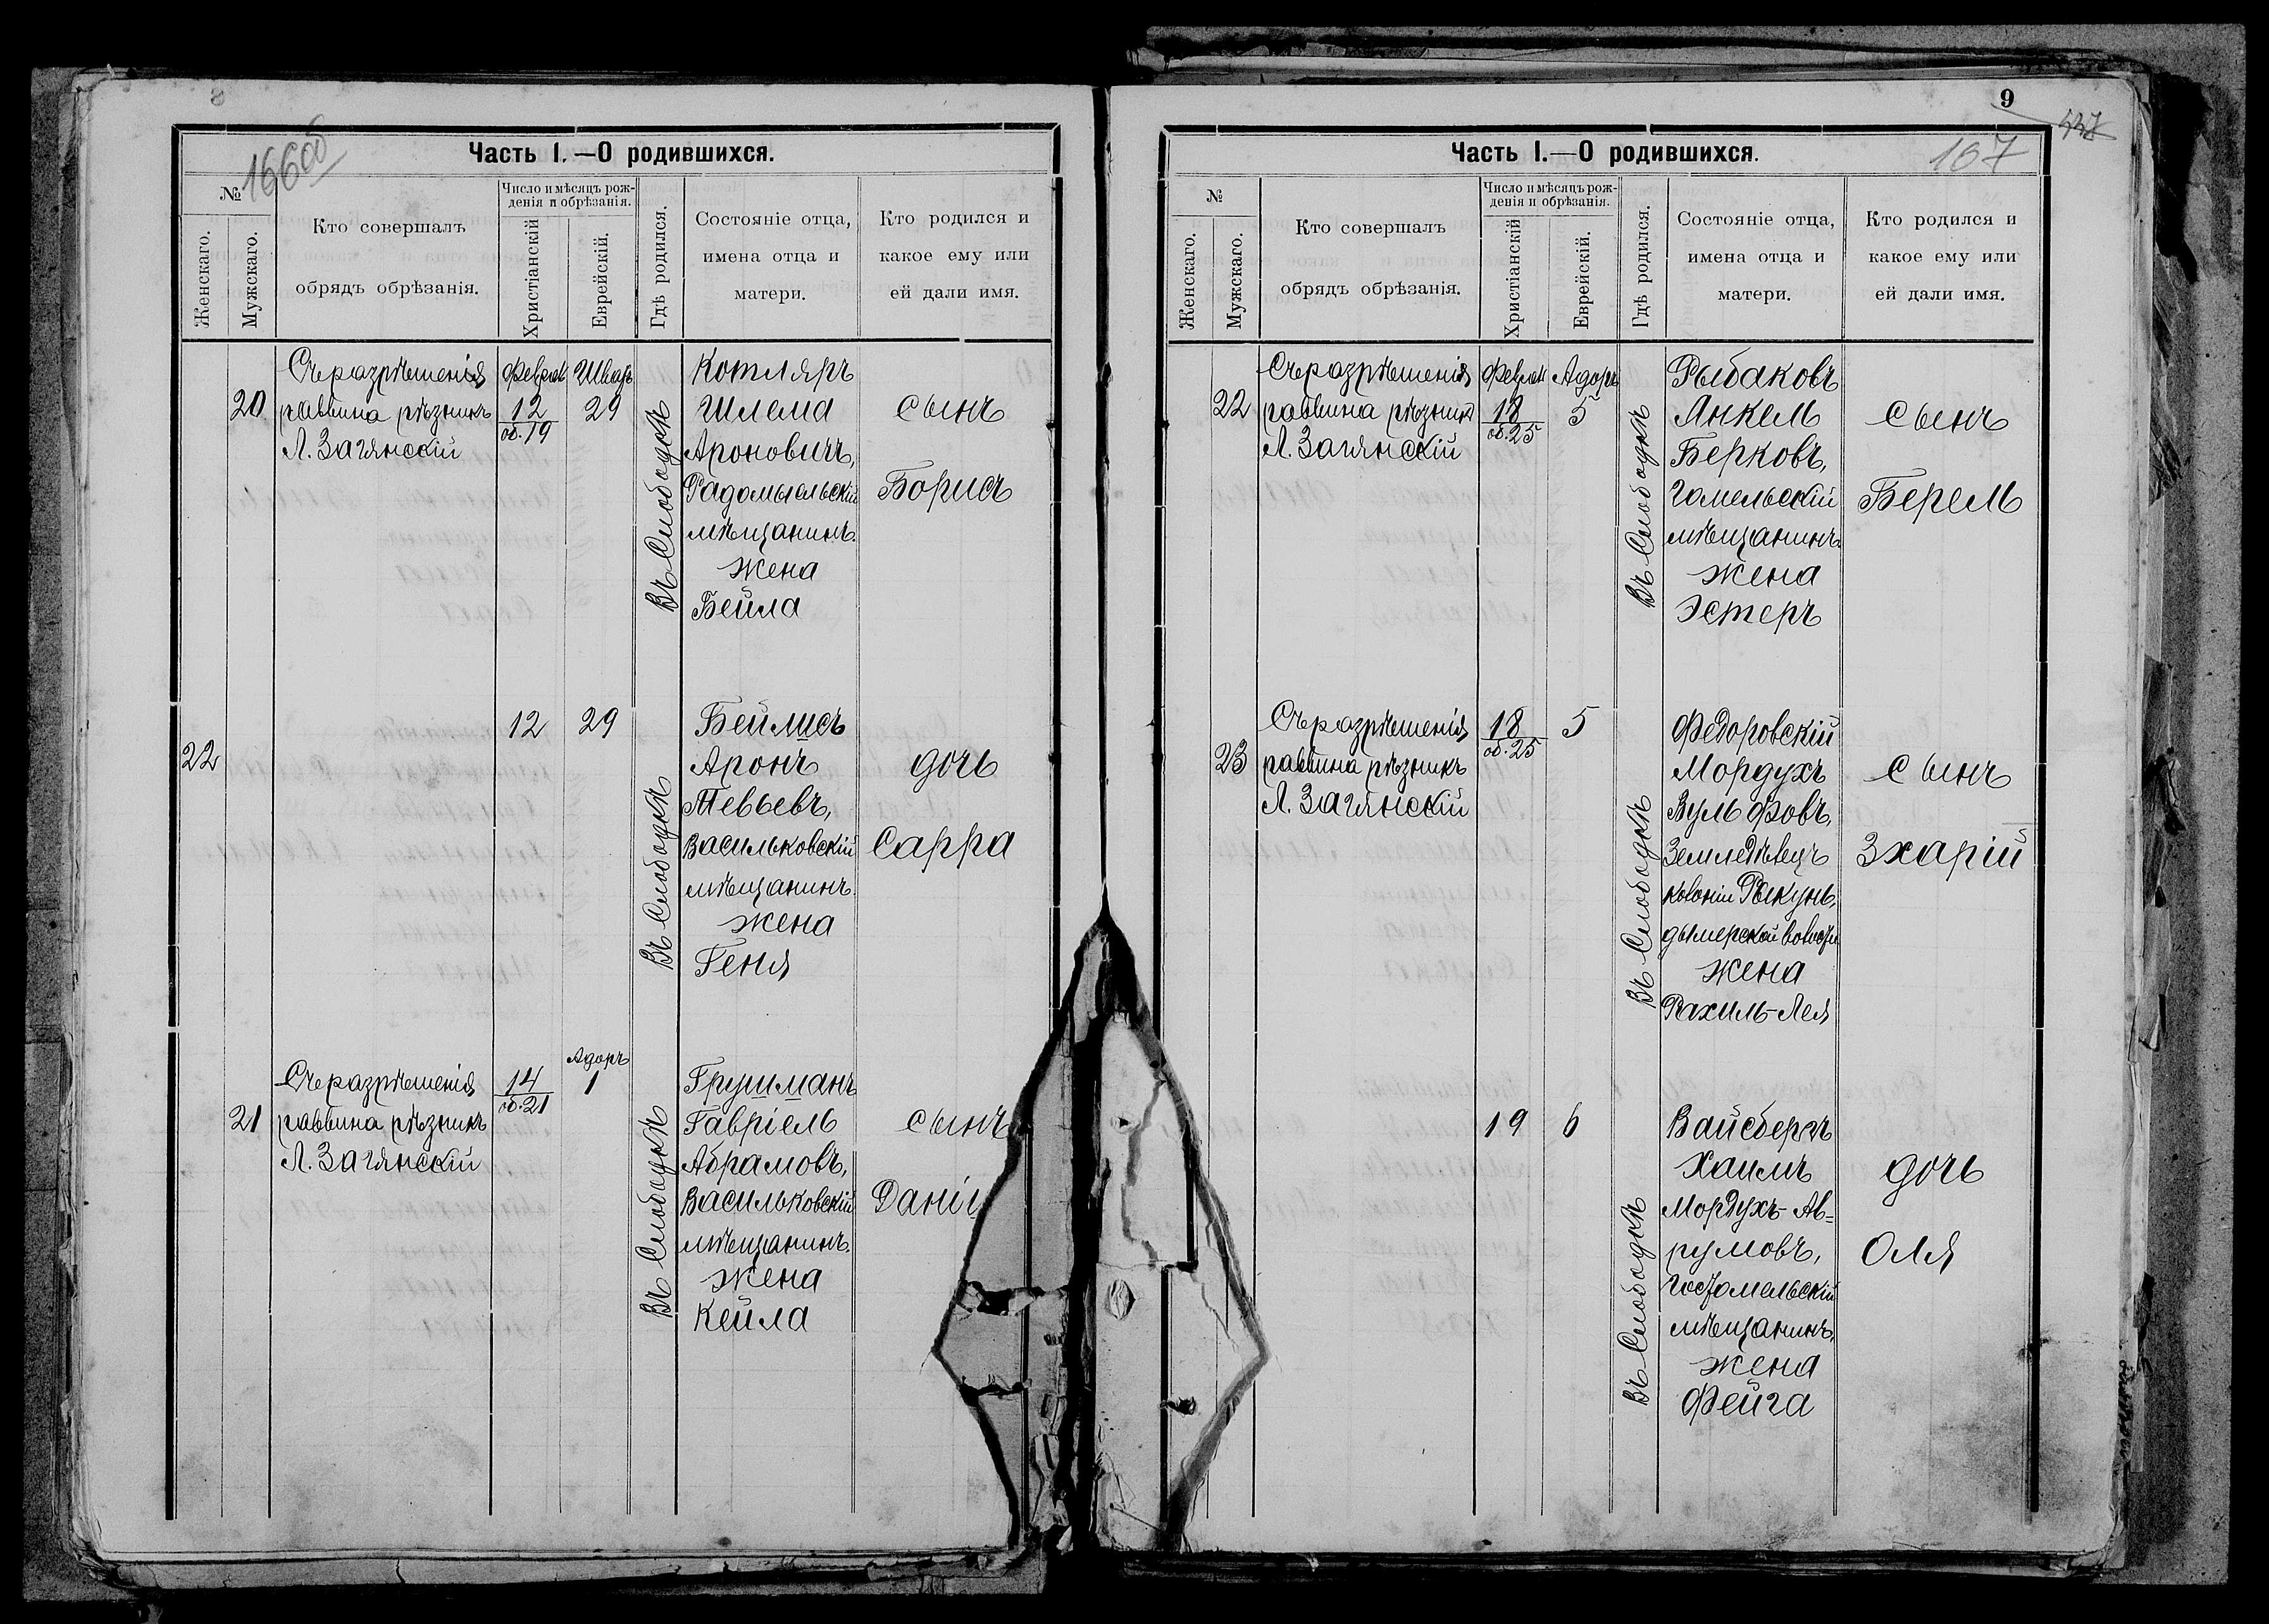 166об
Часть I.—О родившихся.
№
Женскаго.
Мужскаго.
Кто совершалъ
обрядъ обрѣзанія.
Число и мѣсяцъ рож-
денія и обрѣзанія.
Христіанскій
Еврейскій.
Гдѣ родился.
Состояніе отца,
имена отца и
матери.
Кто родился и
какое ему или
ей дали имя.
20
Съ разрѣшенія
раввина рѣзникъ
Л. Загянскій
Февраля
12
об. 19
Шватъ
29
Въ Слободкѣ
Котляръ
Шлема
Ароновичъ,
Радомысльскій
мѣщанинъ.
жена
Бейла
сынъ
Борисъ
22
12
29
Въ Слободкѣ
Бейлисъ
Аронъ
Тевьевъ,
Васильковскій
мѣщанинъ.
жена
Геня
дочь
Сарра
21
Съ разрѣшенія
раввина рѣзникъ
Л. Загянскій
14
об. 21
Адаръ
1
Въ Слободкѣ
Грушманъ
Гавріель
Абрамовъ,
Васильковскій
мѣщанинъ.
жена
Кейла
сынъ
Даніи
9
167
Часть I.—О родившихся.
№
Женскаго.
Мужскаго.
Кто совершалъ
обрядъ обрѣзанія.
Число и мѣсяцъ рож-
денія и обрѣзанія.
Христіанскій
Еврейскій.
Гдѣ родился.
Состояніе отца,
имена отца и
матери.
Кто родился и
какое ему или
ей дали имя.
22
Съ разрѣшенія
раввина рѣзникъ
Л. Загянскій
Февраля
18
об. 25
Адаръ
5
Въ Слободкѣ
Рыбаковъ
Янкель
Берковъ,
Гомельскій
мѣщанинъ
жена
Эстеръ
сынъ
Берель
23
Съ разрѣшенія
раввина рѣзникъ
Л. Загянскій
18
об. 25
5
Въ Слободкѣ
Федоровскій
Мордухъ
Вульфовъ,
Земледѣлецъ
колоніи Рыкунь,
дымерской волости
жена
Рахиль-Лея
сынъ
Зхарій
19
6
Въ Слободкѣ
Вайсбергъ
Хаимъ
Мордухъ-Ав=
румовъ,
Гостомельскій
мѣщанинъ,
жена
Фейга
дочь
Оля